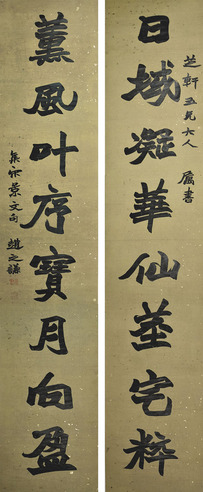 芝軒五兄大人屬書
日域凝華仙莖宅粹
薰風叶序寶月向盈
集宋景文句 趙之謙